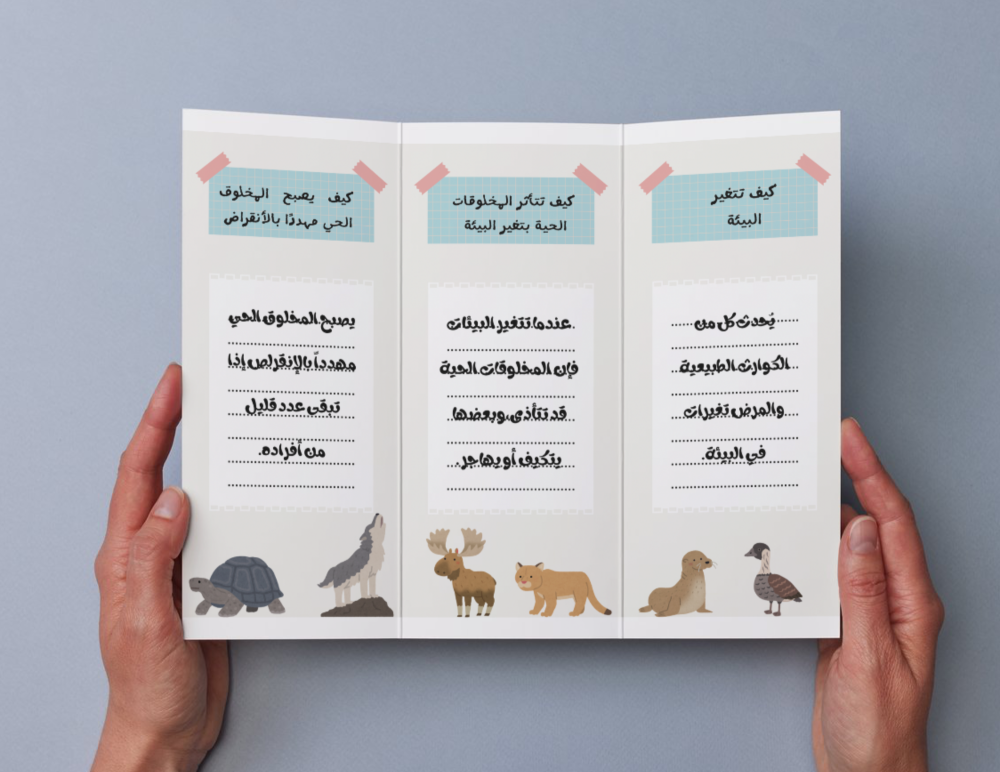 كيف تتغير
البيئة
يُحدث كل من
الكوارث الطبيعية
والمرض تغيرات
في البيئة.
كيف تتأثر المخلوقات
الحية بتغير البيئة
عندما تتغير البيئات
فإن المخلوقات الحية
قد تتأذى، وبعضها
يتكيف أو يهاجر.
كيف يصبح المخلوق
الحي مهددًا بالأنقراض
يصبح المخلوق الحي
مهدداً بالإنقراص إذا
تبقى عدد قليل
من أفراده.